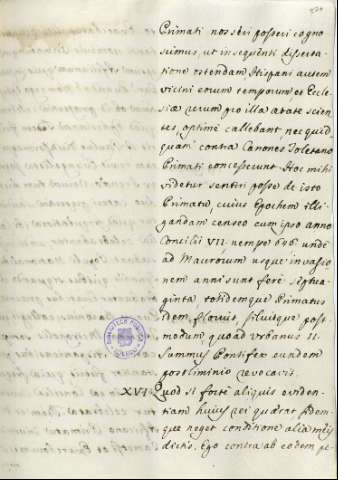 Primati nos seri posteri cogno
scimus, ut in sequenti disserta
tione ostendam. Hispani autem
vicini eorum temporum, et Eccle
siæ rerum pro illa ætate scien
tes, optime callebant, nec quid
quam contra Canones Toletano
Primati concesserunt. Hoc mihi
videtur sentiri posse de isto
Primatu, cuius Epochem illi
gandam censeo cum ipso anno
Concilii VII nempe 646 unde
ad Maurorum usque invasio
nem anni sunt fere septua
ginta totidemque Primatus
idem floruit, siluitque post
modum, quoad Urbanus II
Summus Pontifex eundem
postliminio revocavit.
XVI Quod si forte aliquis eviden
tiam huius rei quærat fidem
que neget conditione alia meis
dictis. Ego contra ab eodem pe